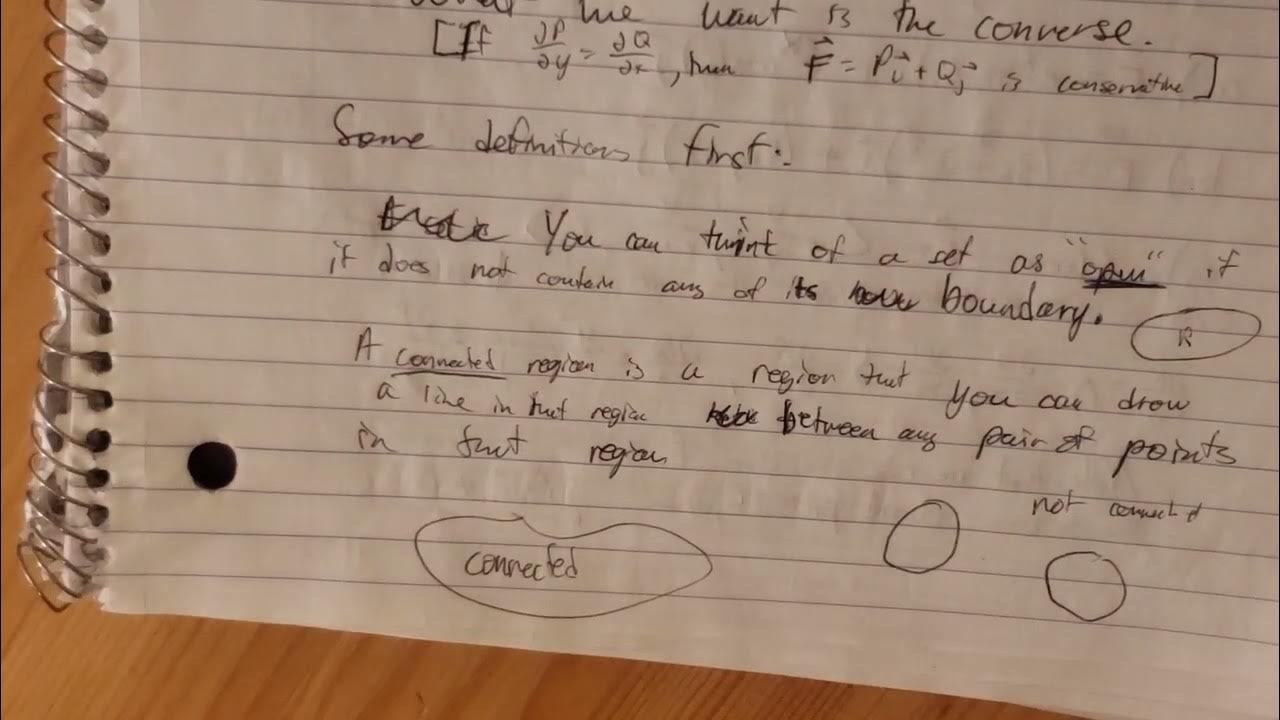 we want is the converse.
[If ∂P/∂y = ∂Q/∂x, then F⃗ = Pi⃗ + Qj⃗ is conservative]
Some definitions first:
You can think of a set as "open" if
it does not contain any of its boundary.
R
A connected region is a region that you can draw
a line in that region between any pair of points
in that region
not connected
connected